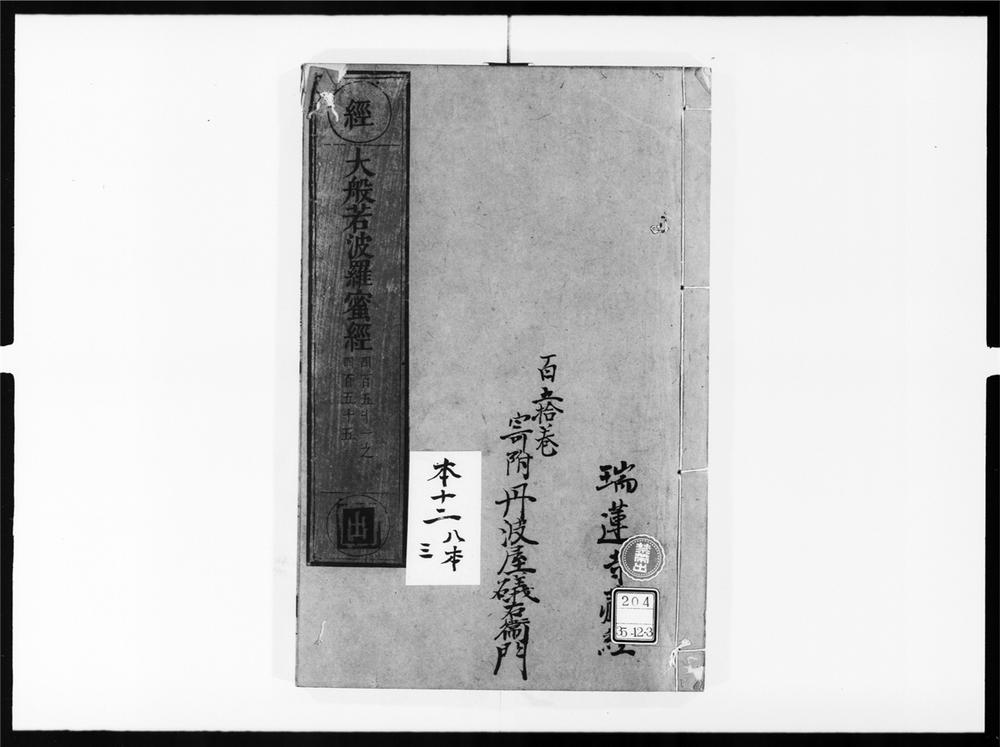 瑞蓮寺蔵経
禁帯出
204
35-12-3
百五拾巻
寄附丹波屋礒右衛門
本十二
八本
三
經
大般若波羅蜜經
四百五十一之
四百五十五
出